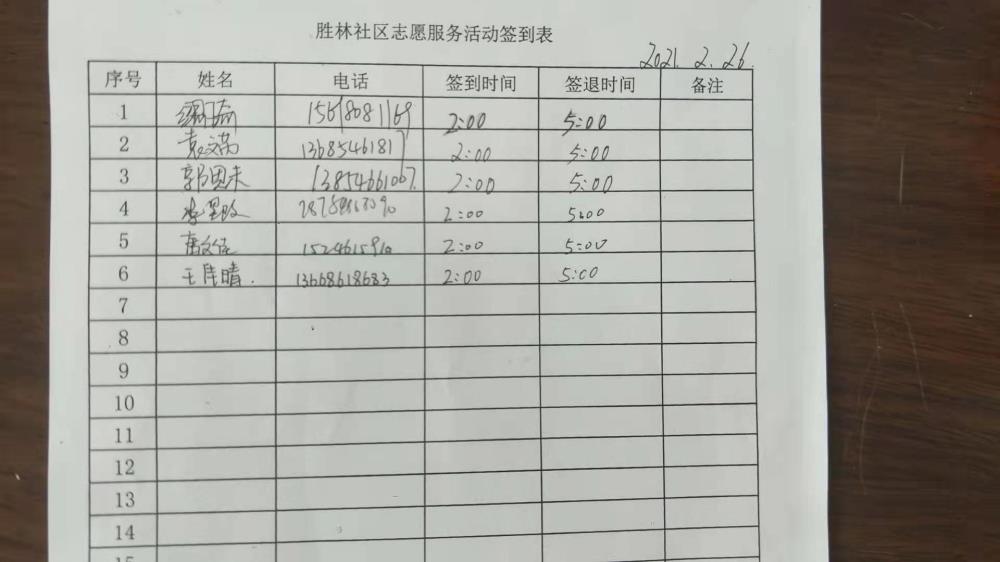 胜林社区志愿服务活动签到表
2021. 2. 26.
序号 姓名 电话 签到时间 签退时间 备注
1 2:00 5:00
2 袁文芮 13685461817 2:00 5:00
3 13854661007 2:00 5:00
4 2:00 5:00
5 2:00 5:00
6 13668618683 2:00 5:00
7
8
9
10
11
12
13
14
15